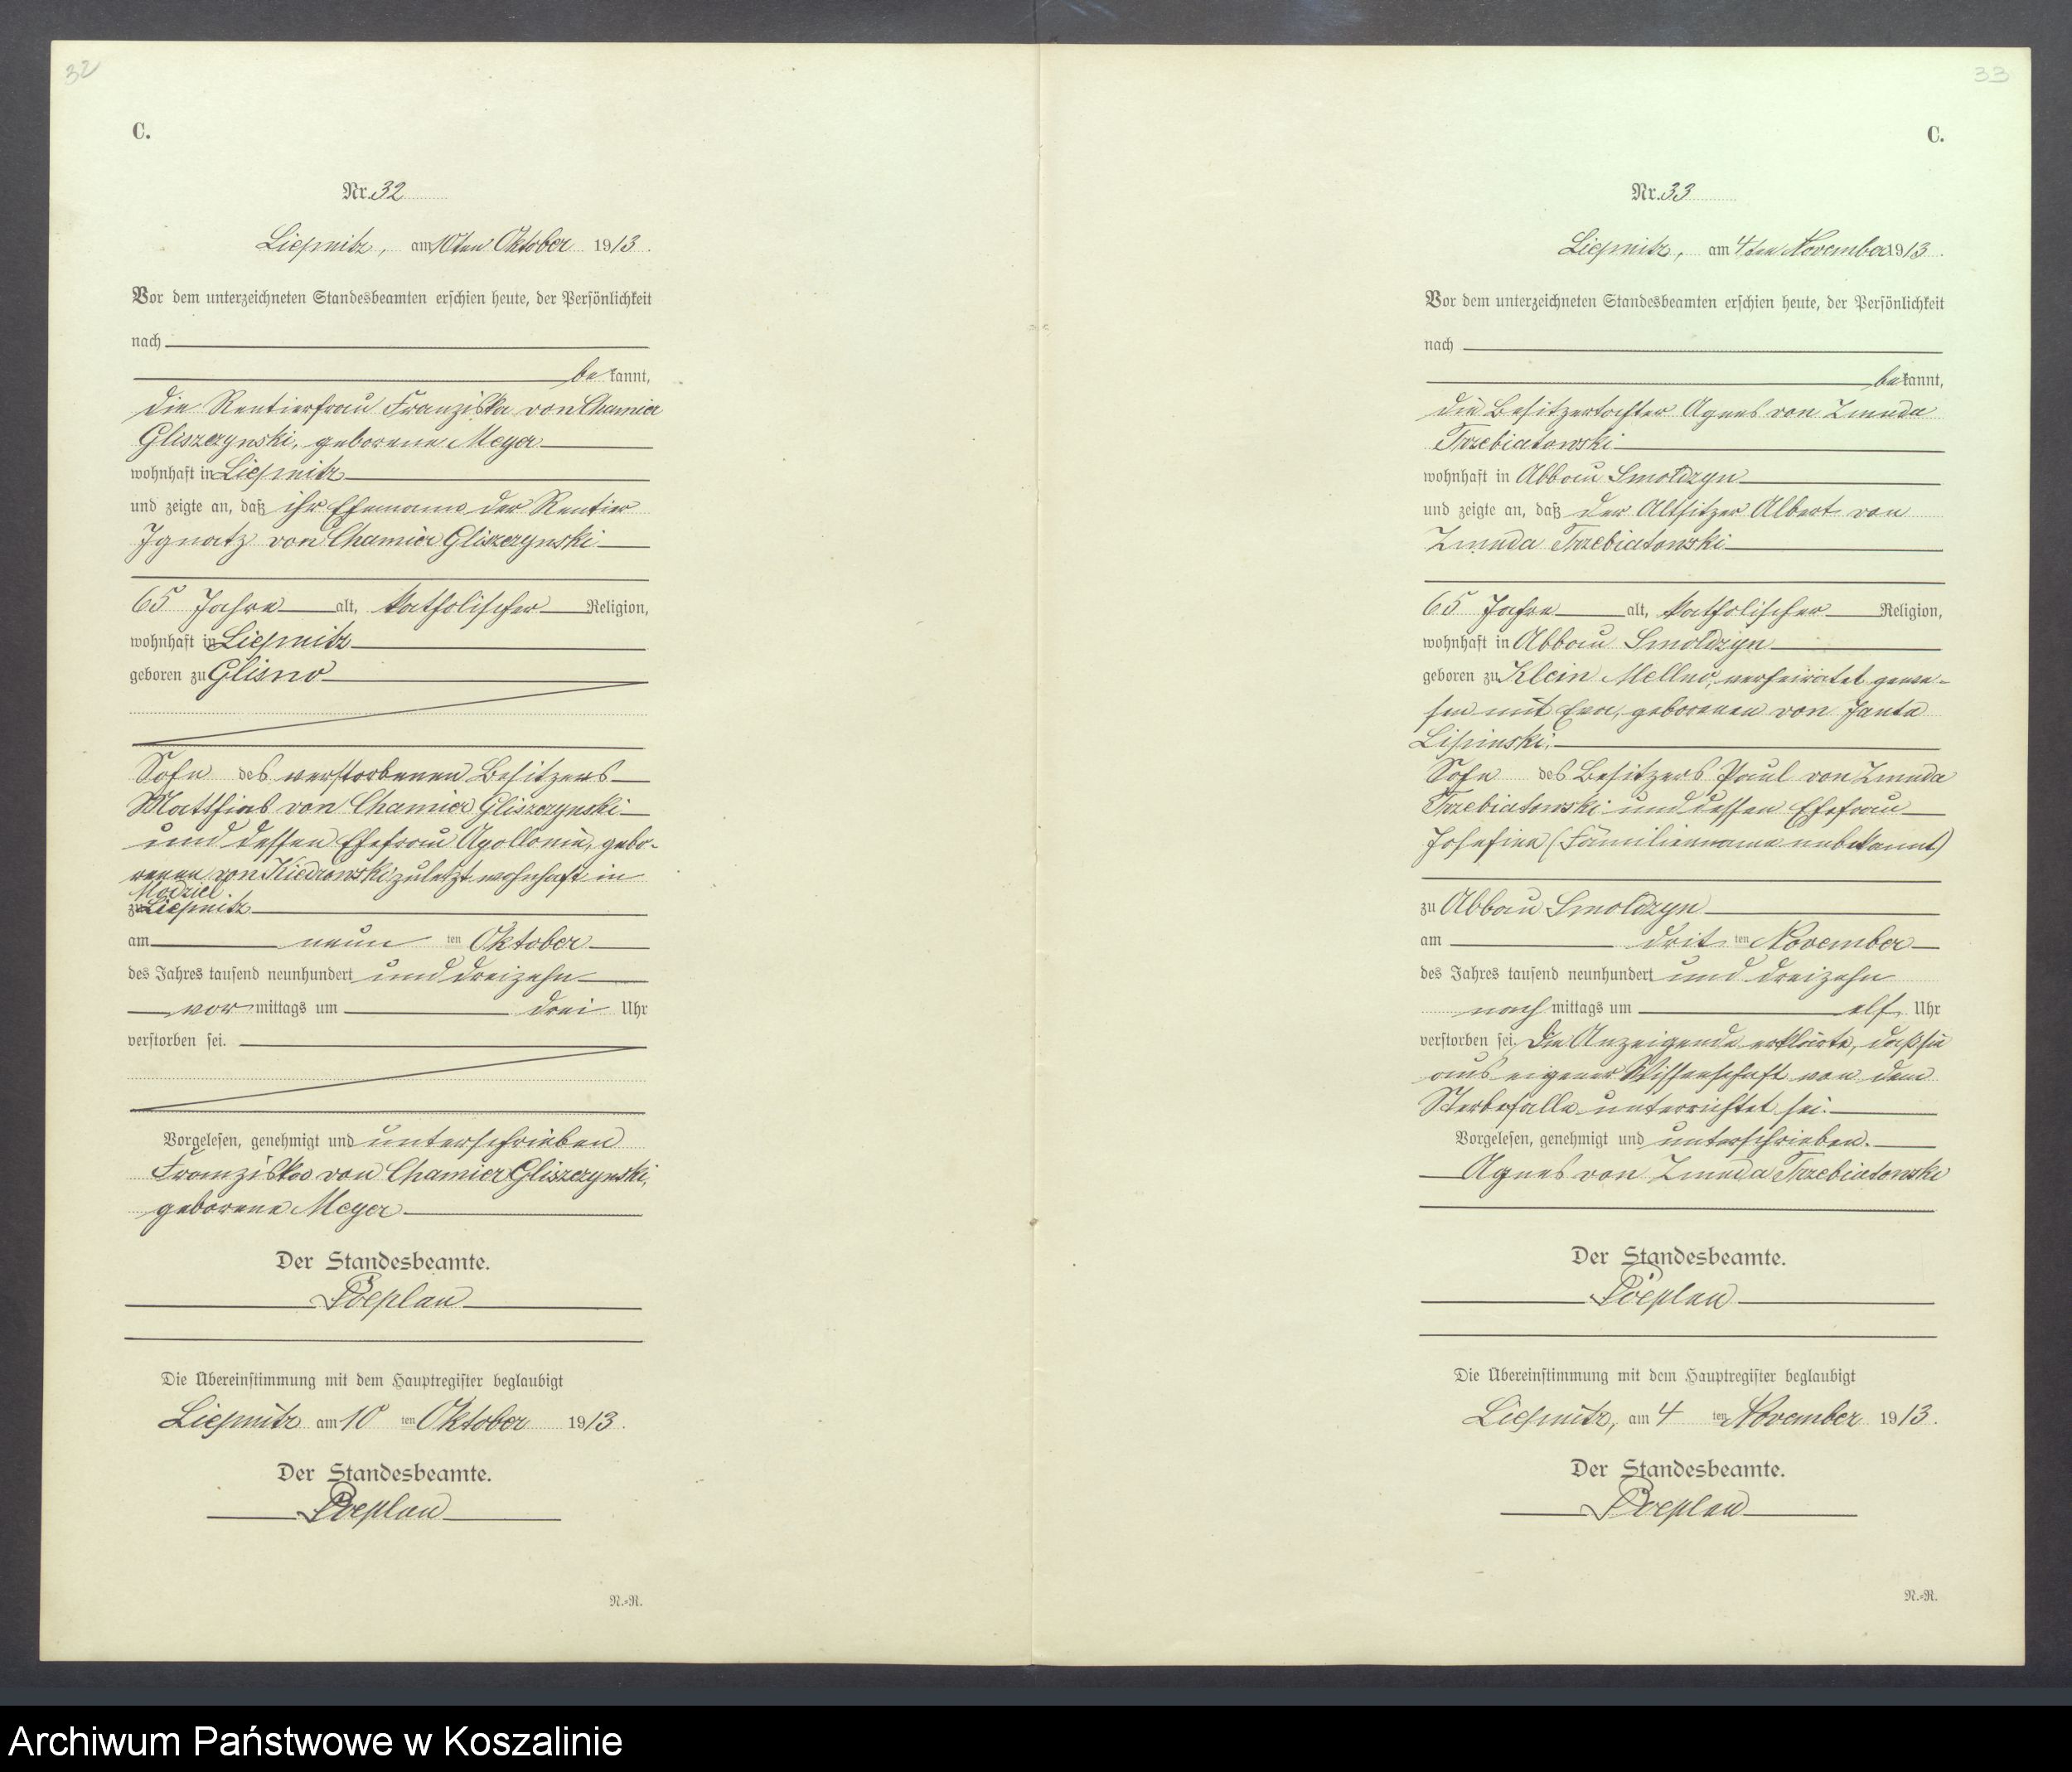 32
C.
Nr. 32
Liepnitz, am 10ten Oktober 1913.
Vor dem unterzeichneten Standesbeamten erschien heute, der Persönlichkeit
nach
bekannt,
die Rentierfrau Franziska von Chamier
Gliszczynski, geborene Meyer
wohnhaft in Liepnitz
und zeigte an, daß ihr Ehemann der Rentier
Ignatz von Chamier Gliszczynski
65 Jahre alt, katholischer Religion,
wohnhaft in Liepnitz
geboren zu Glisno
Sohn des verstorbenen Besitzers
Matthias von Chamier Gliszczynski
und dessen Ehefrau Apollonie, gebo-
renen von Kiedrowski zuletzt wohnhaft in
Modziel
zu Liepnitz
am neun ten Oktober
des Jahres tausend neunhundert und dreizehn
vormittags um drei Uhr
verstorben sei.
Vorgelesen, genehmigt und unterschrieben
Franziska von Chamier Gliszczynski,
geborene Meyer
Der Standesbeamte.
Poeplau
Die Übereinstimmung mit dem Hauptregister beglaubigt
Liepnitz am 10 ten Oktober 1913.
Der Standesbeamte.
Poeplau
N.-R.
33
C.
Nr. 33
Liepnitz, am 4ten November 1913.
Vor dem unterzeichneten Standesbeamten erschien heute, der Persönlichkeit
nach
bekannt,
die Besitzertochter Agnes von Zmuda
Trzebiatowski
wohnhaft in Abbau Smoldzyn
und zeigte an, daß der Altsitzer Albert von
Zmuda Trzebiatowski
65 Jahre alt, katholischer Religion,
wohnhaft in Abbau Smoldzyn
geboren zu Klein Mellno, verheiratet gewe-
sen mit Eva, geborenen von Janta
Lipinski.
Sohn des Besitzers Paul von Zmuda
Trzebiatowski und dessen Ehefrau
Josefine (Familienname unbekannt)
zu Abbau Smoldzyn
am drit ten November
des Jahres tausend neunhundert und dreizehn
nachmittags um elf Uhr
verstorben sei. Die Anzeigende erklärte, daß sie
aus eigener Wissenschaft von dem
Sterbefalle unterrichtet sei.
Vorgelesen, genehmigt und unterschrieben.
Agnes von Zmuda Trzebiatowski
Der Standesbeamte.
Poeplau
Die Übereinstimmung mit dem Hauptregister beglaubigt
Liepnitz, am 4 ten November 1913.
Der Standesbeamte.
Poeplau
N.-R.
Archiwum Państwowe w Koszalinie